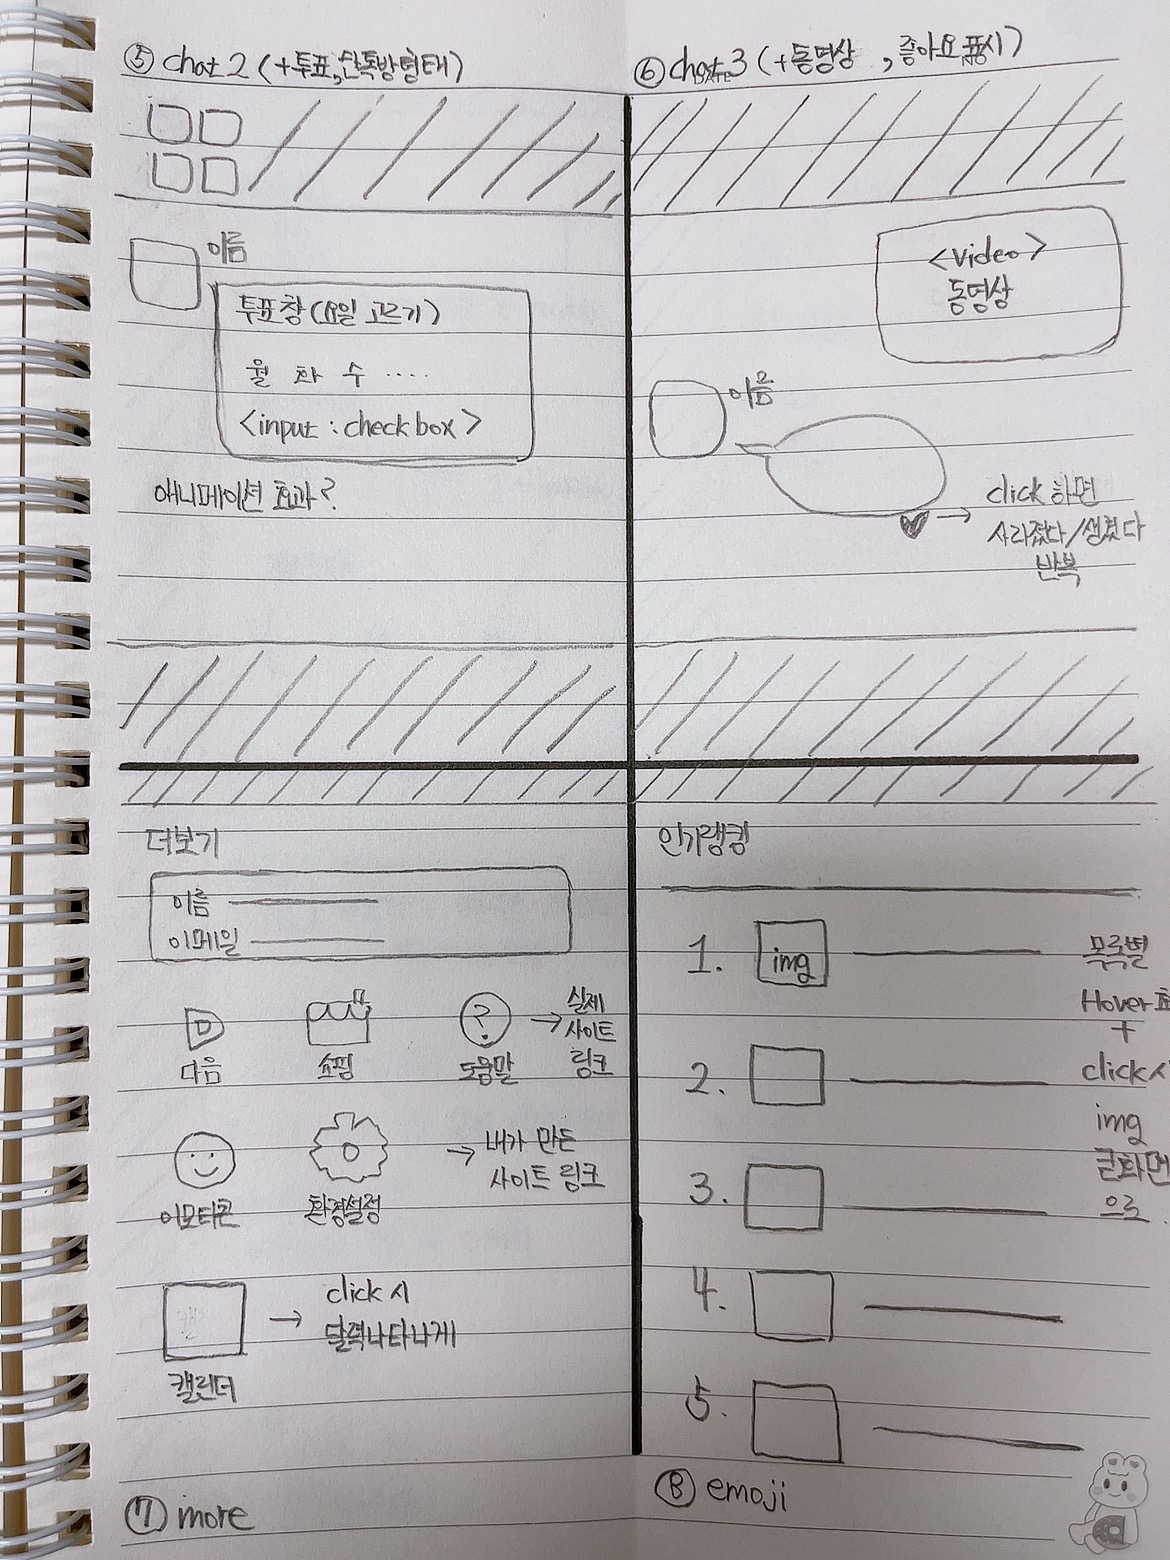 ⑤ chat 2 (+투표, 단톡방형태)
이름
투표창 (요일 고르기)
월 화 수 ····
<input : check box>
애니메이션 효과?
⑥ chat 3 (+동영상 , 좋아요 표시)
<video>
동영상
이름
click 하면
사라졌다/생겼다
반복
더보기
이름
이메일
다음
쇼핑
?
도움말
→ 실제
사이트
링크
이모티콘
환경설정
→ 내가 만든
사이트 링크
캘린더
→ click 시
달력나타나게
⑦ more
인기랭킹
1.
img
2.
3.
4.
5.
목록별
Hover 효
+
click 시
img
큰화면
으로.
⑧ emoji